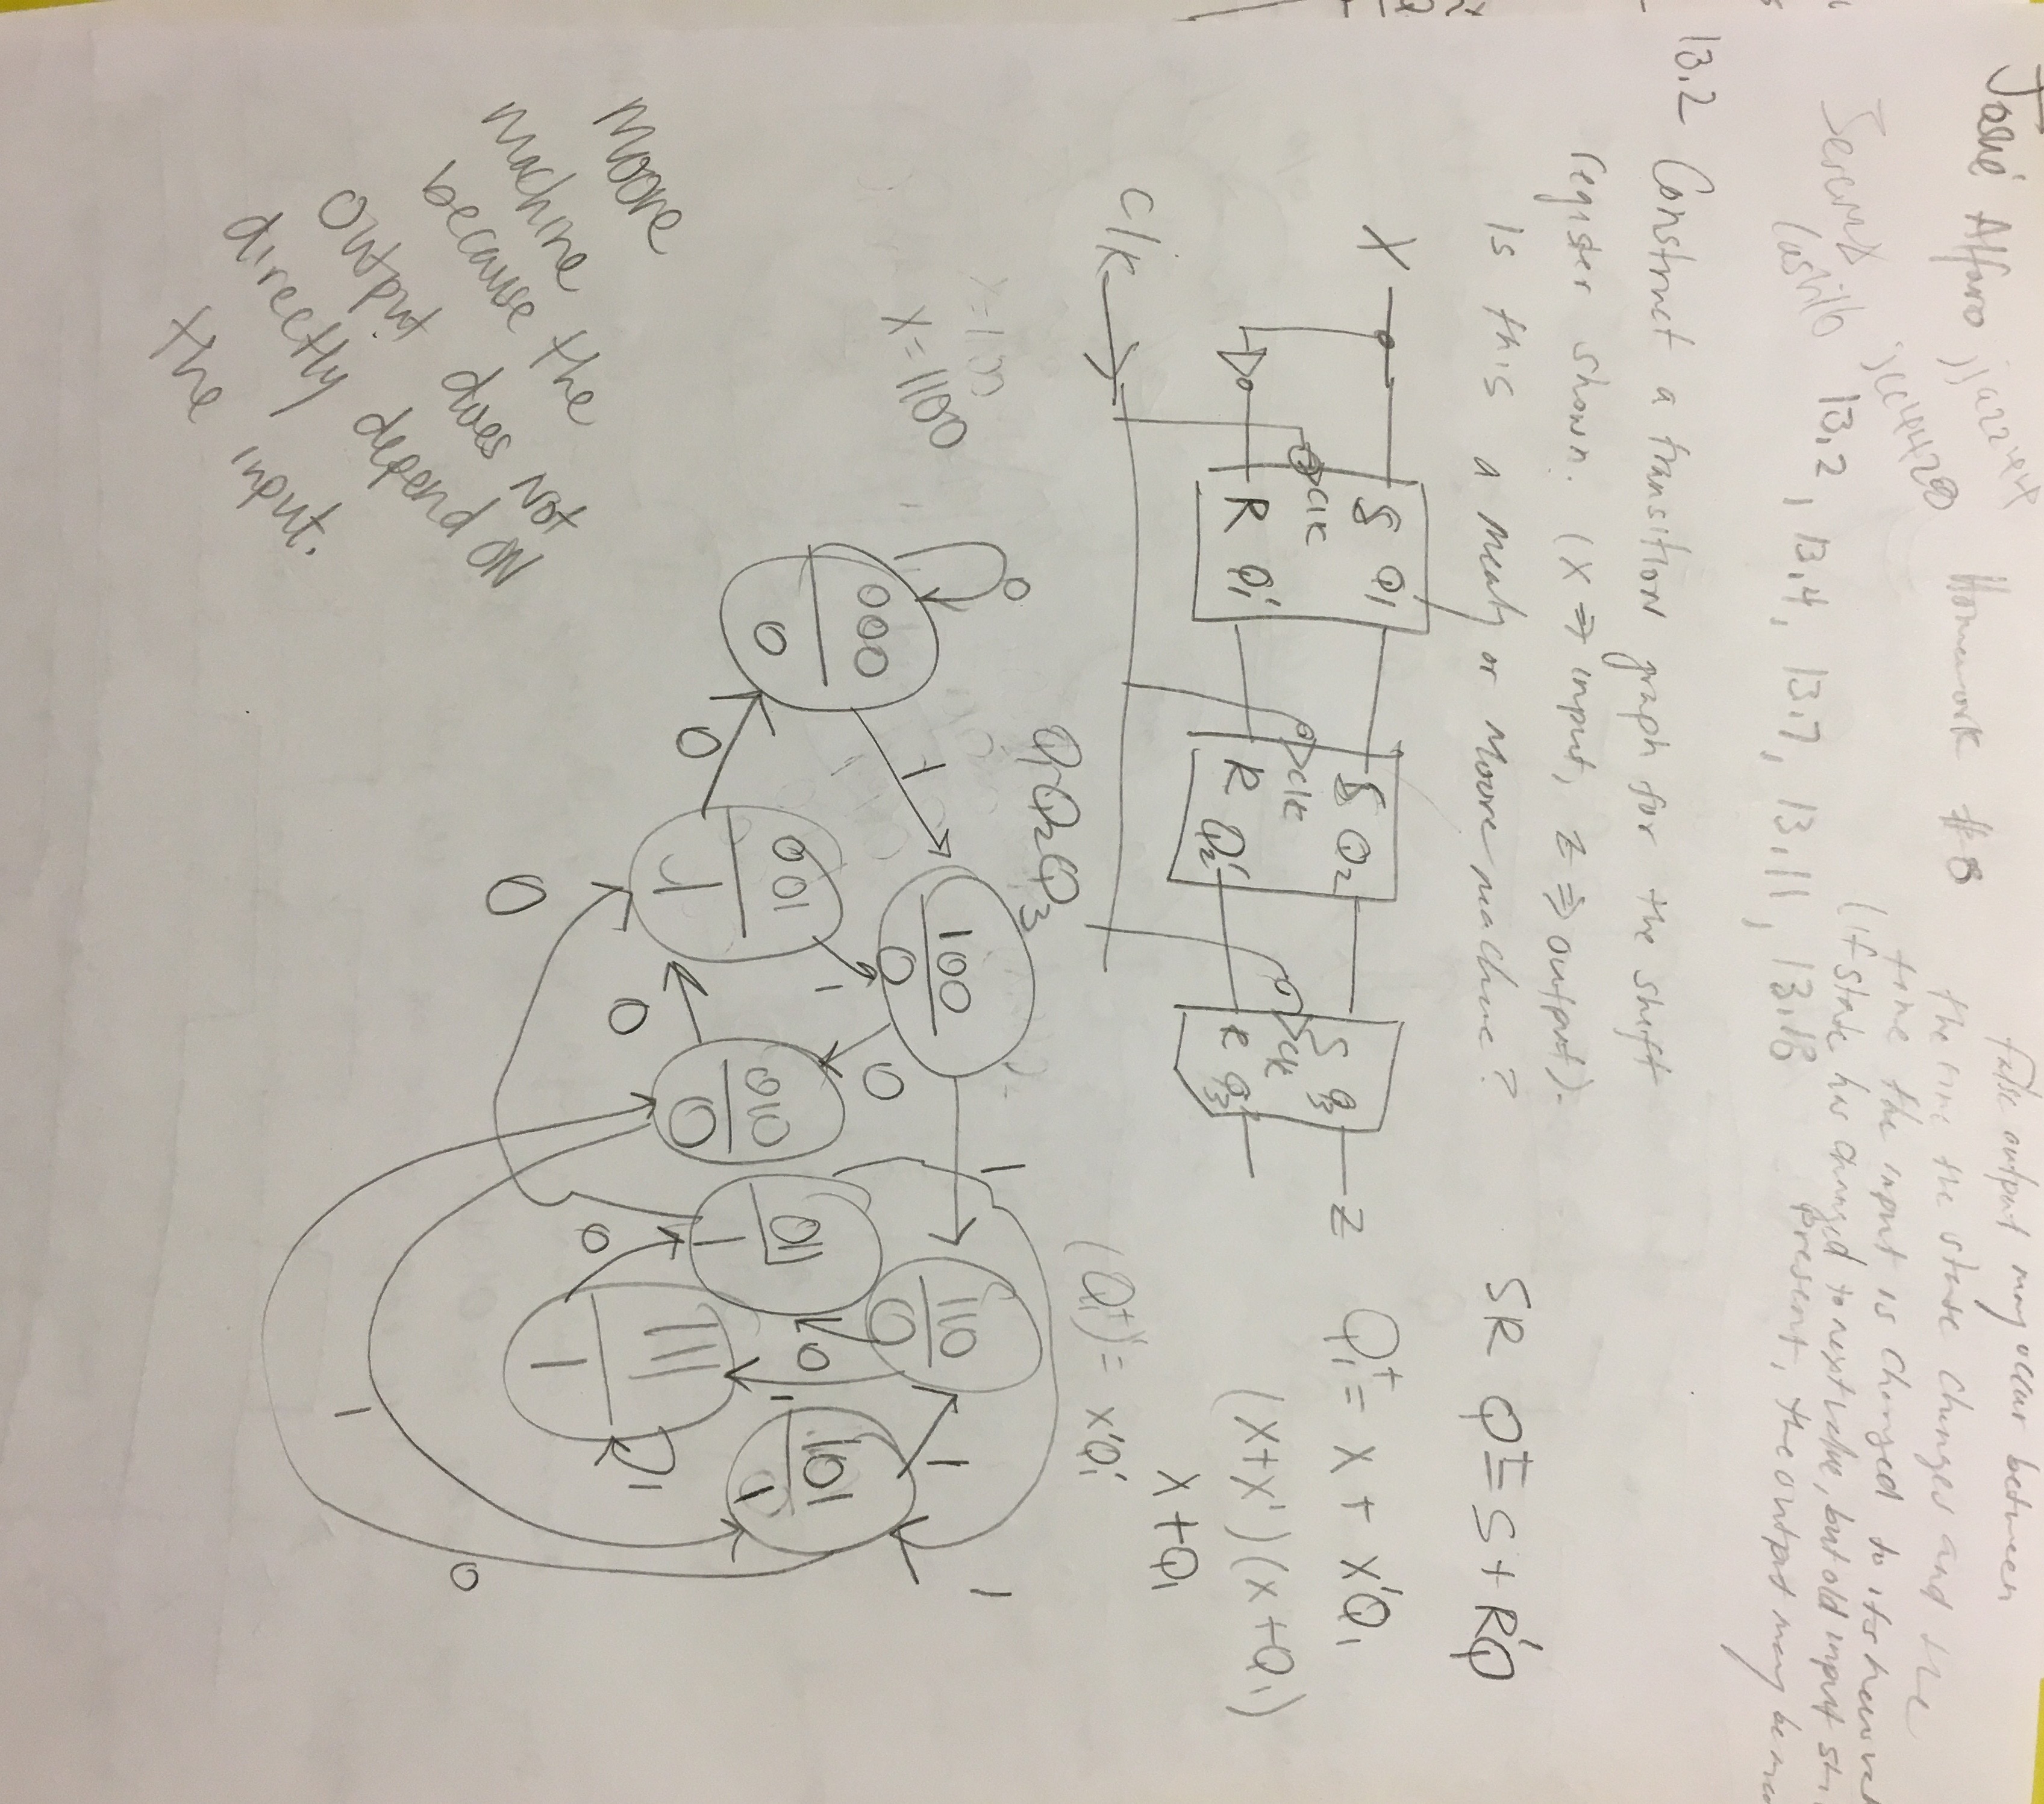 José Alfaro
Homework #8
13.2, 13.4, 13.7, 13.11, 13.18
false output may occur between
the time the state changes and the
time the input is changed to its new
(If state has changed to next value, but old input
present, the output may be
13.2 Construct a transition graph for the shift
register shown. (X ⇒ input, Z ⇒ output).
Is this a mealy or Moore machine?
X
S Q1
Clk
R Q1'
S Q2
Clk
R Q2'
S Q3
Clk
R Q3'
Z
Clk
SR Q+ = S + R'Q
Q1+ = X + X'Q1
(X+X')(X+Q1)
X+Q1
(Q1+)' = X'Q1'
X=1100
Q1Q2Q3
0
000
0
1
100
0
0
001
1
1
0
0
010
0
0
1
011
1
0
110
0
0
1
111
1
1
1
101
1
1
1
0
Moore
Machine
because the
Output does Not
directly depend ON
the input.